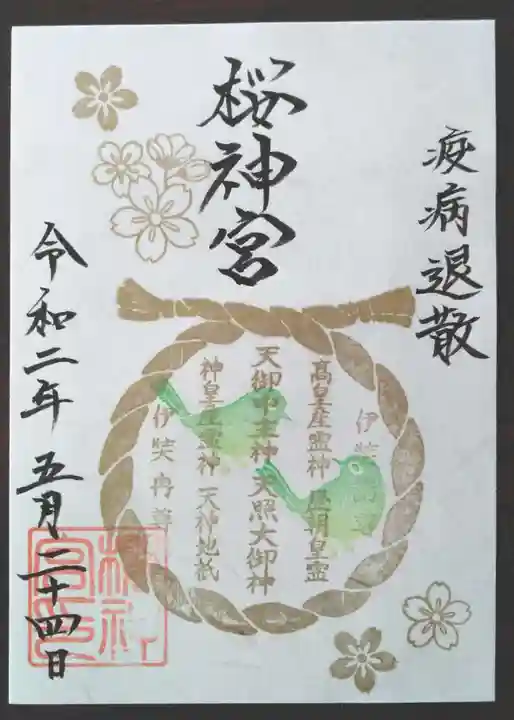 疫病退散
桜神宮
伊弉諾尊
高皇産霊神 歴朝皇霊
天御中主神 天照大御神
神皇産霊神 天神地祇
伊弉冉尊
令和二年五月二十四日